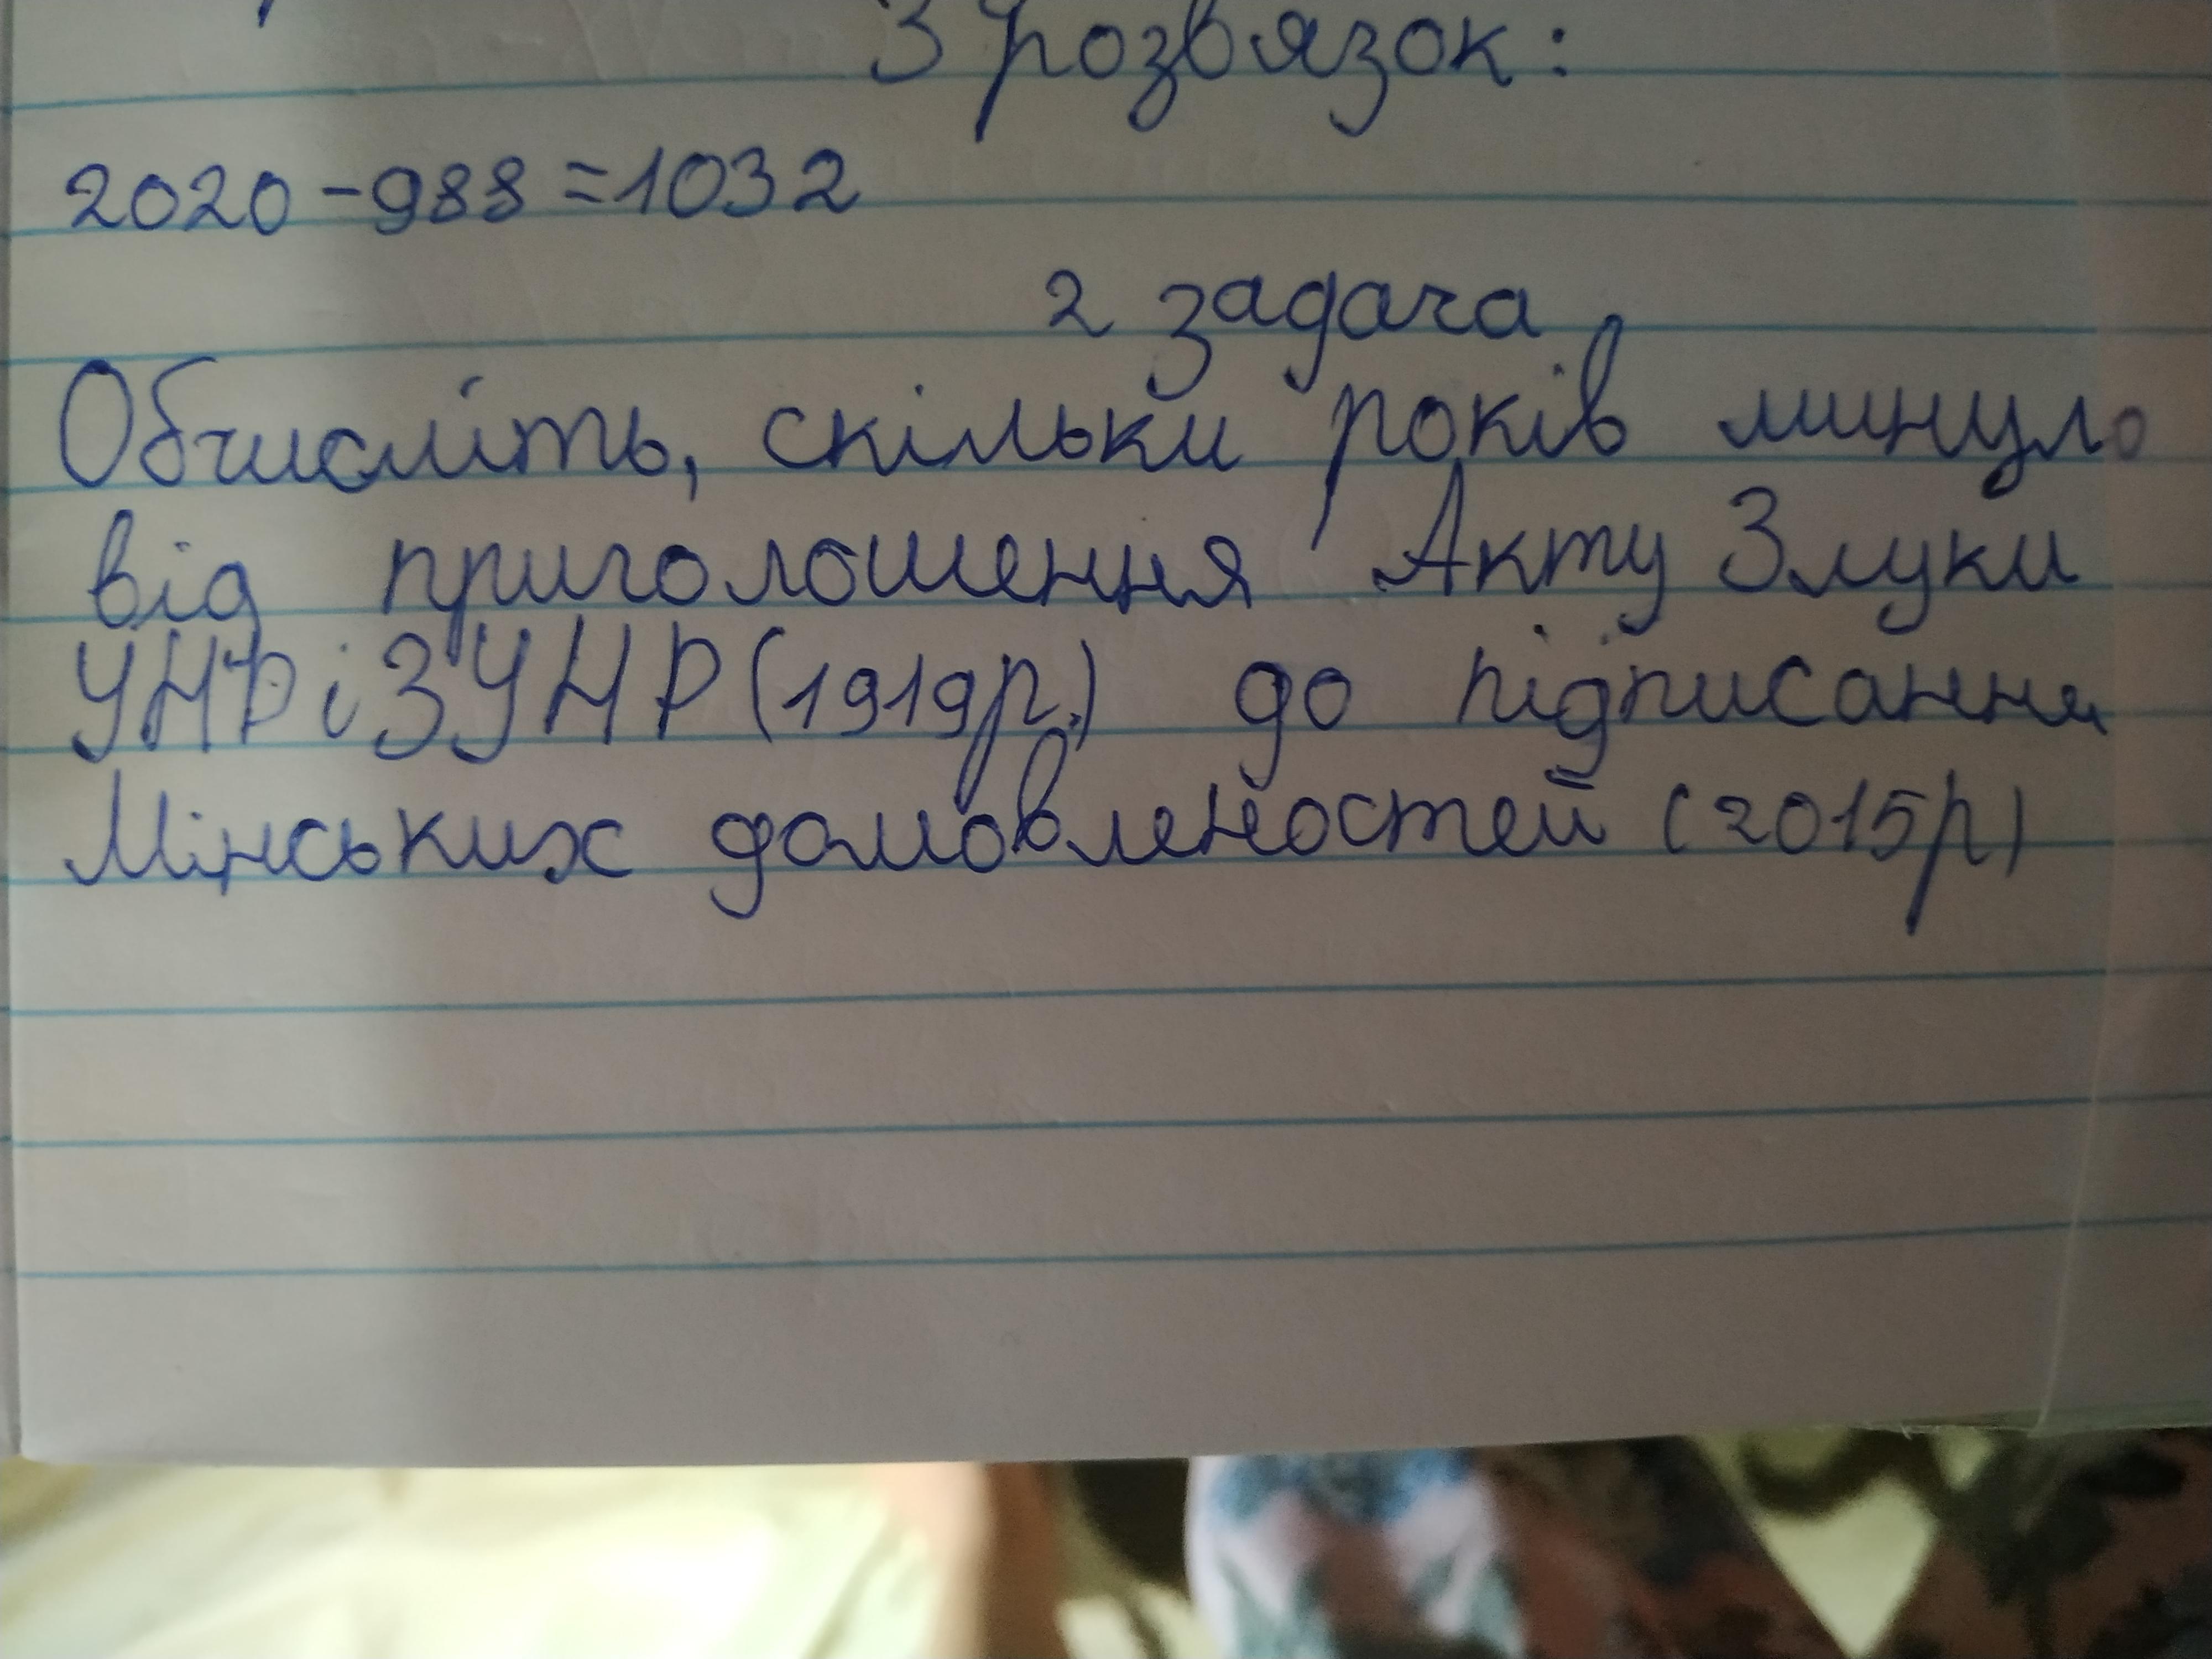 З розвязок:
2020-988=1032
2 задача
Обчисліть, скільки років минуло
від приголошення Акту Злуки
УНР і ЗУНР (1919р.) до підписання
Мінських домовленостей (2015р)